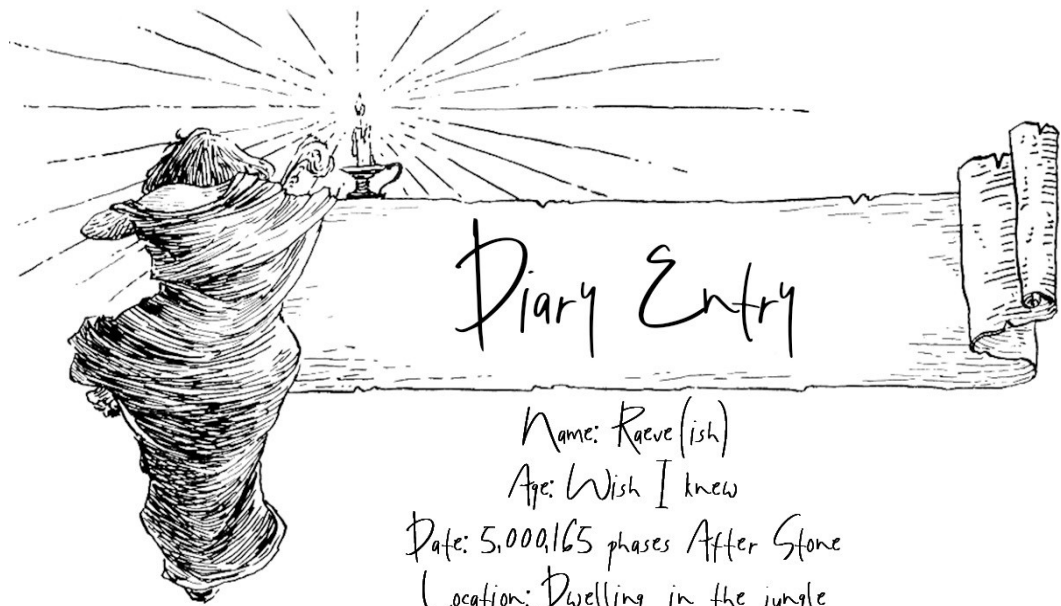 Diary Entry
Name: Raeve(ish)
Age: Wish I knew
Date: 5,000,165 phases After Stone
Location: Dwelling in the jungle